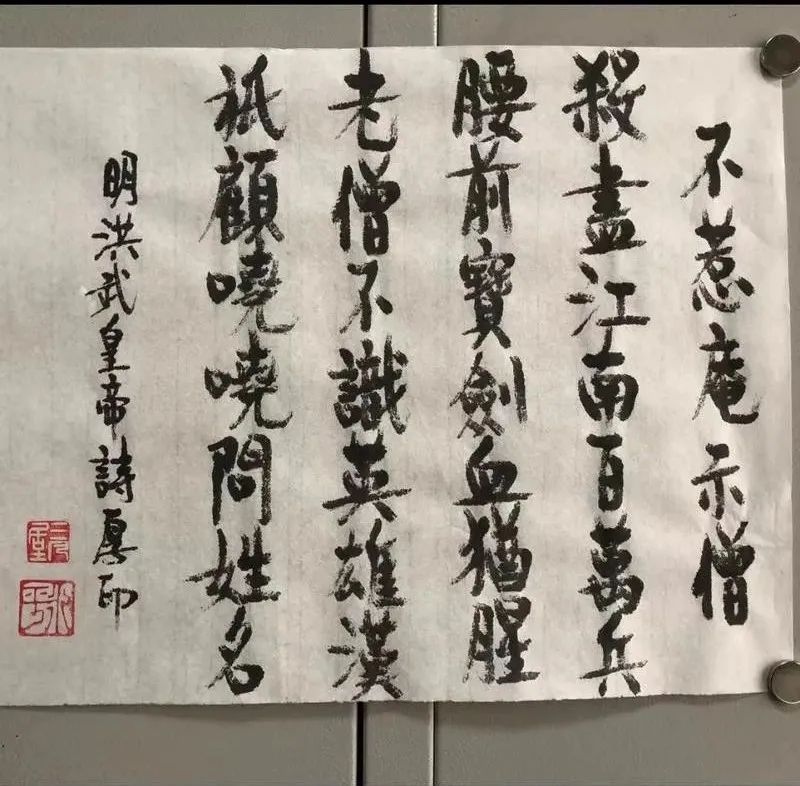 不惹庵示僧
殺盡江南百萬兵
腰前寶劍血猶腥
老僧不識英雄漢
祇顧嘵嘵問姓名
明洪武皇帝詩厚印